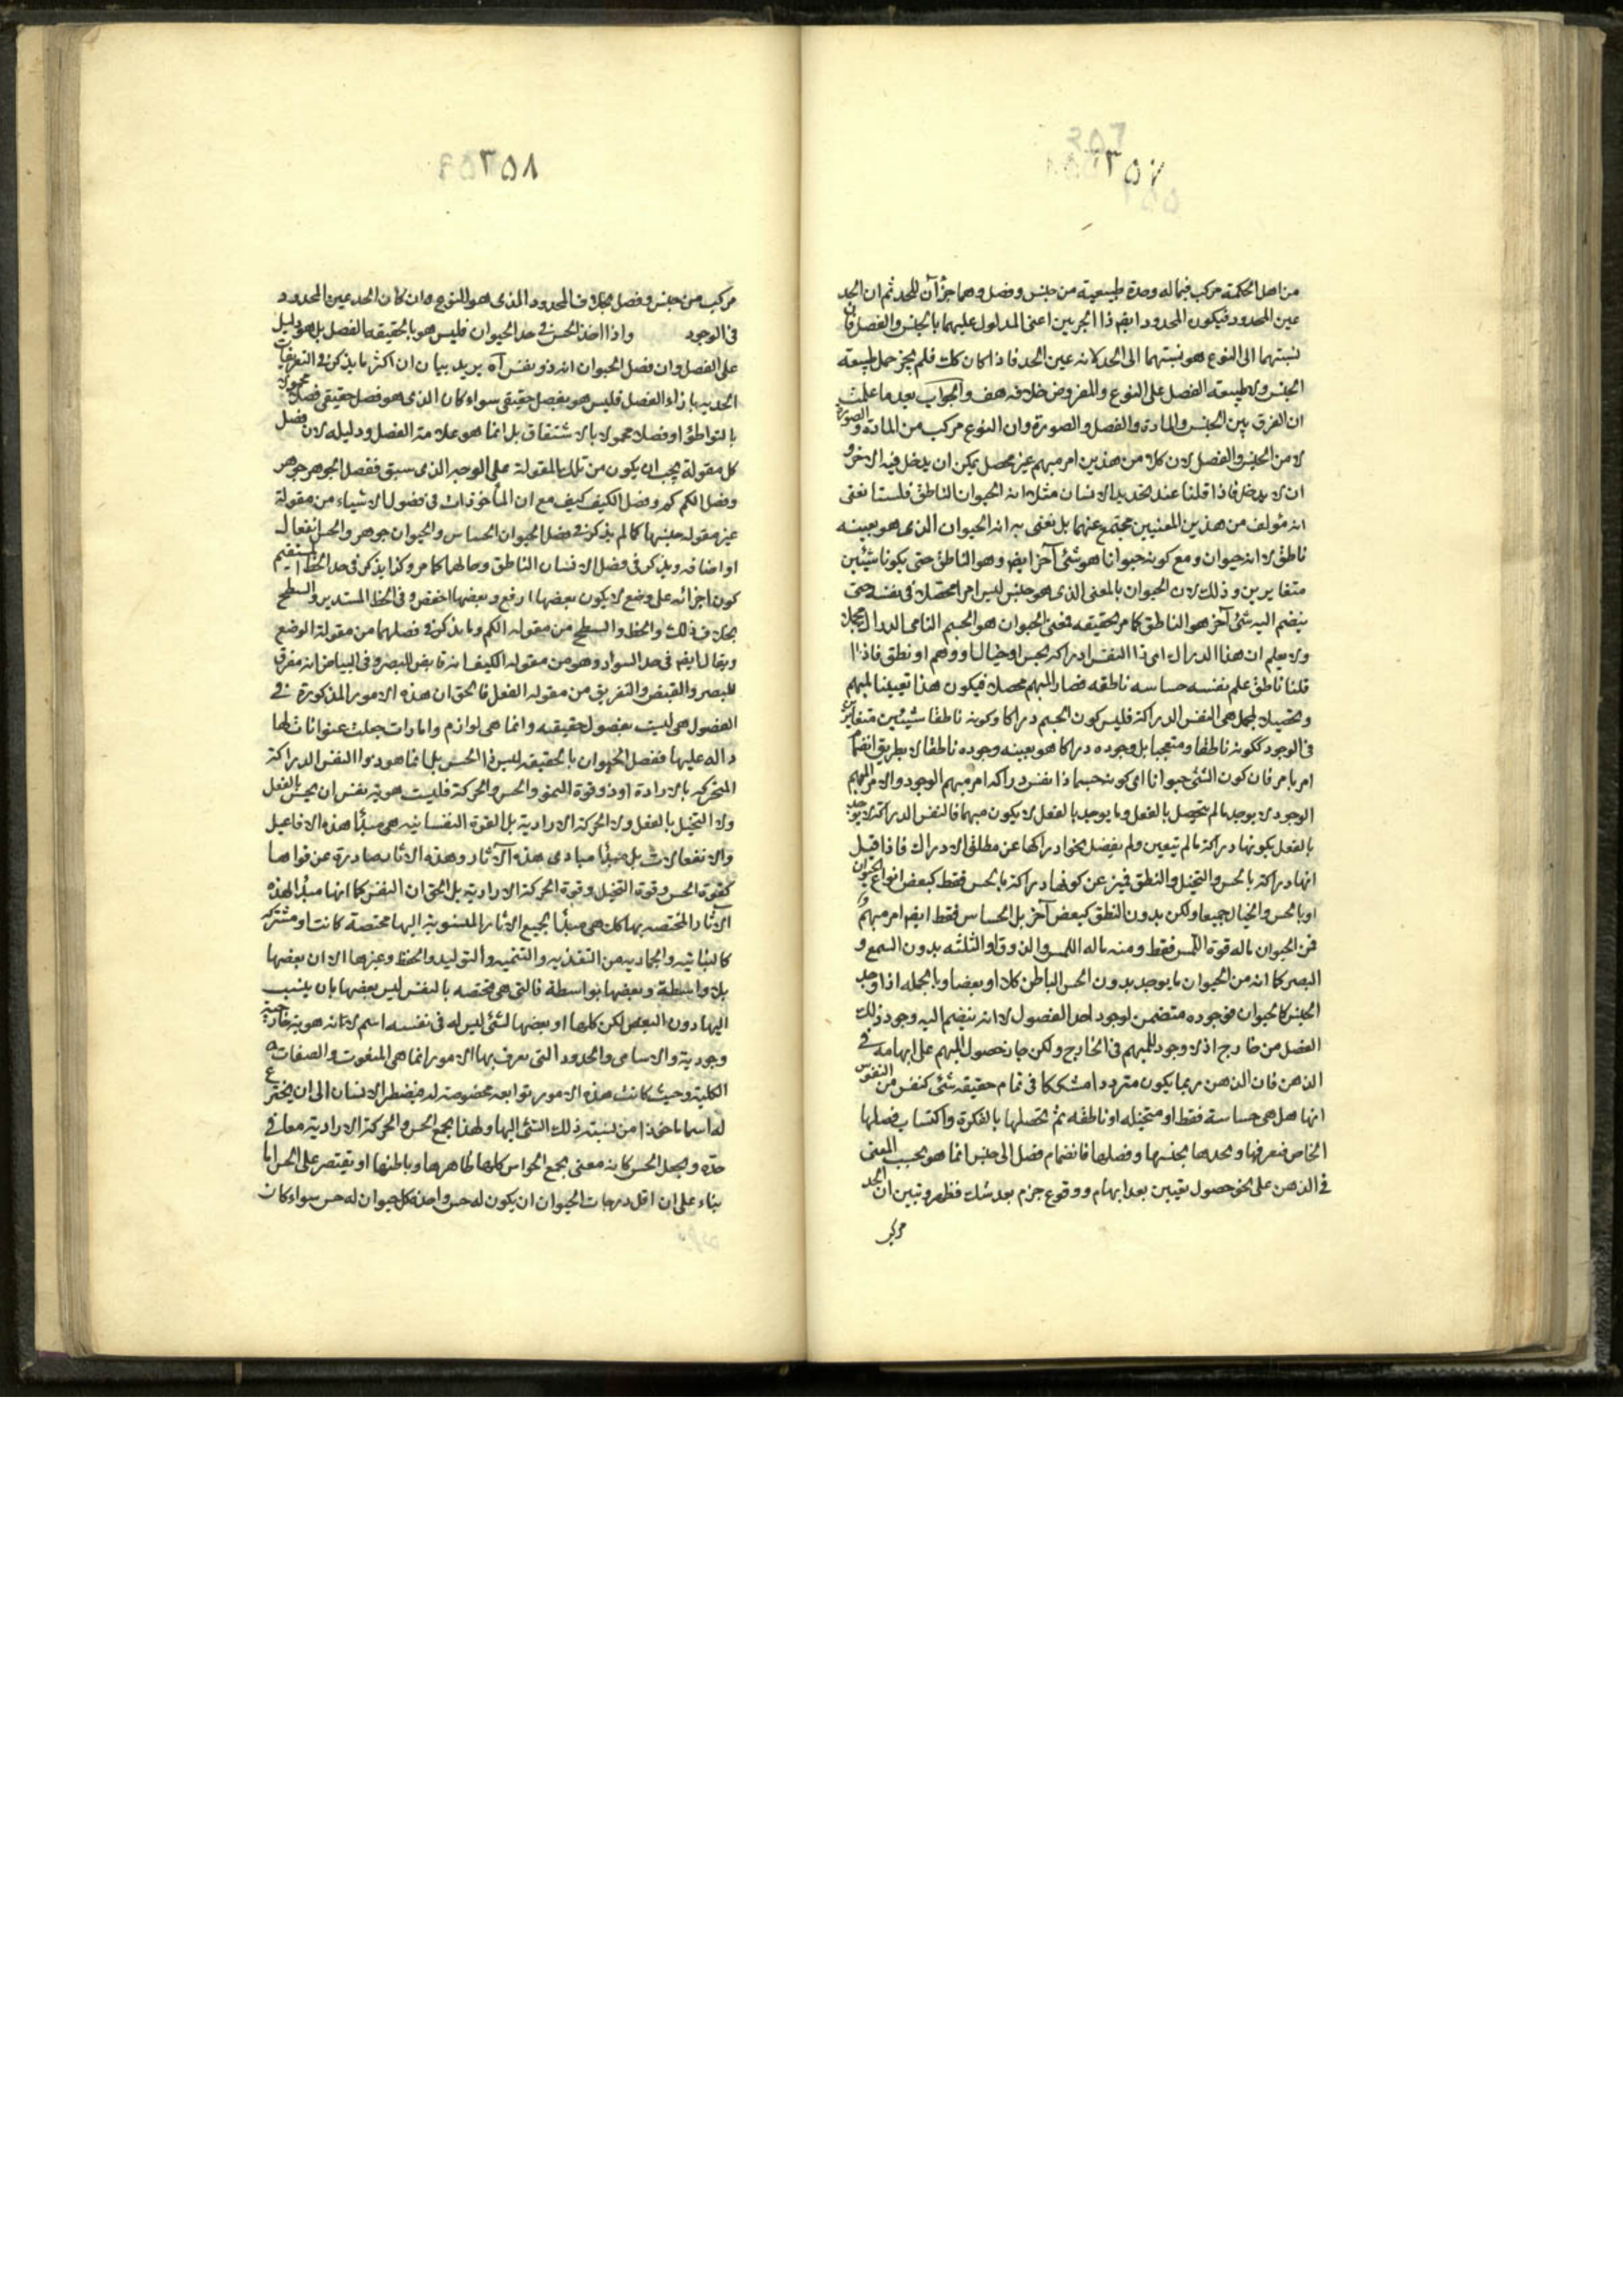 ٣٥٧
من اهل الحكمة مركب فيما له وحدة طبيعية من جنس وفصل وهما جزآن للحد ثم ان الحد
عين المحدود فيكون المحدود ايضا ذا الجزئين اعنى المدلول عليهما بالجنس والفصل فان
نسبتهما الى النوع هو نسبتهما الى الحد لانه عين الحد فاذا كان كك فلم يجز حمل طبيعة
الجنس ولا طبيعة الفصل على النوع والمفروض خلافه هف والجواب بعد ما علمت
ان الفرق بين الجنس والمادة والفصل والصورة وان النوع مركب من المادة والصورة
لا من الجنس والفصل لان كلا من هذين امر مبهم غير محصل يمكن ان يدخل فيه الاخر و
ان لا يدخل فاذا قلنا عند تحديد الانسان مثلا انه الحيوان الناطق فلسنا نعنى
انه مؤلف من هذين المعنيين مجتمع عنهما بل نعنى به انه الحيوان الذى هو بعينه
ناطق لا انه حيوان ومع كونه حيوانا هو شئ آخر ايضا وهو الناطق حتى يكونا شيئين
متغايرين وذلك لان الحيوان بالمعنى الذى هو جنس ليس امرا محصلا فى نفسه حتى
ينضم اليه شئ آخر هو الناطق كما مر تحقيقه فمعنى الحيوان هو الجسم النامى الدراك مجملا
ولا يعلم ان هذا الدراك اى ذا النفس ادراكه بحس او خيال او وهم او نطق فاذا
قلنا ناطق علم نفسه حساسه ناطقه فصار المبهم محصلا فيكون هذا تعيينا لمبهم
وتحصيلا لمجمل هى النفس الدراكة فليس كون الجسم دراكا وكونه ناطقا شيئين متغايرين
فى الوجود ككونه ناطقا ومتعجبا بل وجوده دراكا هو بعينه وجوده ناطقا لا بطريق انضمام
امر بامر فان كون الشئ حيوانا اى كونه جسما ذا نفس دراكه امر مبهم الوجود والامر المبهم
الوجود لا يوجد ما لم يتحصل بالفعل وما يوجد بالفعل لا يكون مبهما فالنفس الدراكة لا يوجد
بالفعل بكونها دراكة ما لم يتعين ولم يفصل نحو ادراكها عن مطلق الادراك فاذا قيل
انها دراكة بالحس والتخيل والنطق فميز عن كونها دراكة بالحس فقط كبعض انواع الحيوان
او بالحس والخيال جميعا ولكن بدون النطق كبعض آخر بل الحساس فقط ايضا امر مبهم و
فمن الحيوان ماله قوة اللمس فقط ومنه ماله اللمس والذوق او الثلثه بدون السمع و
البصر كما انه من الحيوان ما يوجد بدون الحس الباطن كلا او بعضا وبالجمله اذا وجد
الجنس كالحيوان فوجوده متضمن لوجود احد الفصول لا انه ينضم اليه وجود ذلك
الفصل من خارج اذ لا وجود للمبهم فى الخارج ولكن جاز حصول المبهم على ابهامه فى
الذهن فان الذهن ربما يكون مترددا متشككا فى تمام حقيقه شئ كنفس من النفوس
انها هل هى حساسة فقط او متخيله او ناطقه ثم تحصلها بالفكرة واكتساب فصلها
الخاص فنعرفها ونحدها بجنسها وفصلها فانضمام فصل الى جنس انما هو بحسب المعنى
فى الذهن على نحو حصول تعيين بعد ابهام ووقوع جزم بعد شك فظهر وتبين ان الحد
مركب
٣٥٨
مركب من جنس وفصل بخلاف المحدود الذى هو النوع وان كان الحد عين المحدود
فى الوجود واذا اخذ الحس فى حد الحيوان فليس هو بالحقيقه الفصل بل هو دليل
على الفصل وان فصل الحيوان انه ذو نفس آه يريد بيان ان اكثر ما يذكر فى التعريفات
الحديه بازاء الفصل فليس هو بفصل حقيقى سواء كان الذى هو فصل حقيقى فصلا محمولا
بالتواطؤ او فصلا محمولا بالاشتقاق بل انما هو علامة الفصل ودليله لان فصل
كل مقولة يجب ان يكون من تلك المقولة على الوجه الذى سبق ففصل الجوهر جوهر
وفصل الكم كم وفصل الكيف كيف مع ان المأخوذات فى فصول الاشياء من مقولة
غير مقوله جنسها كما لم يذكر فى فصل الحيوان الحساس والحيوان جوهر والحس انفعال
او اضافه ويذكر فى فصل الانسان الناطق وحالها كما مر وكذا يذكر فى حد الخط المستقيم
كون اجزائه على وضع لا يكون بعضها ارفع وبعضها اخفض وفى الخط المستدير والسطح
بخلاف ذلك والخط والسطح من مقوله الكم وما يذكر فى فصلهما من مقولة الوضع
ويقال ايضا فى حد السواد وهو من مقوله الكيف انه قابض للبصر وفى البياض انه مفرق
للبصر والقبض والتفريق من مقوله الفعل فالحق ان هذه الامور المذكورة فى
الفصول هى ليست بفصول حقيقيه وانما هى لوازم وامارات جعلت عنوانات لها
داله عليها ففصل الحيوان بالحقيقه ليس ذا الحس بل انما هو ذو النفس الدراكة
المتحركه بالارادة او ذو قوة النمو والحس والحركة فليست هوية نفس ان يحس بالفعل
ولا التخيل بالفعل ولا الحركة الارادية بل القوة النفسانيه هى مبدأ هذه الافاعيل
والانفعالات بل مبدأ مبادى هذه الآثار وهذه الاثار صادرة عن قواها
كقوة الحس وقوة التخيل وقوة الحركة الارادية بل الحق ان النفس كما انها مبدأ لهذه
الآثار المختصه بها كك هى مبدأ لجميع الاثار المنسوبة اليها مختصة كانت او مشتركه
كالنباتيه والجماديه من التغذيه والتنميه والتوليد والحفظ وغيرها الا ان بعضها
بلا واسطة وبعضها بواسطة فالتى هى مختصه بالنفس ليس بعضها بان ينسب
اليها دون البعض لكن كلها او بعضها لشئ ليس له فى نفسه اسم لانه هوية خارجية
وجودية والاسامى والحدود التى يعرف بها الامور انما هى المنعوت والصفات
الكلية وحيث كانت هذه الامور توابعه مخصوصة له فيضطر الانسان الى ان يخترع
له اسما ماخوذا من نسبة ذلك الشئ اليها ولهذا يجمع الحس والحركة الارادية معا فى
حده ويجعل الحس كانه معنى يجمع الحواس كلها ظاهرها وباطنها او يقتصر على الحس اما
بناء على ان اقل درجات الحيوان ان يكون له حس واحد فكل حيوان له حس سواء كان